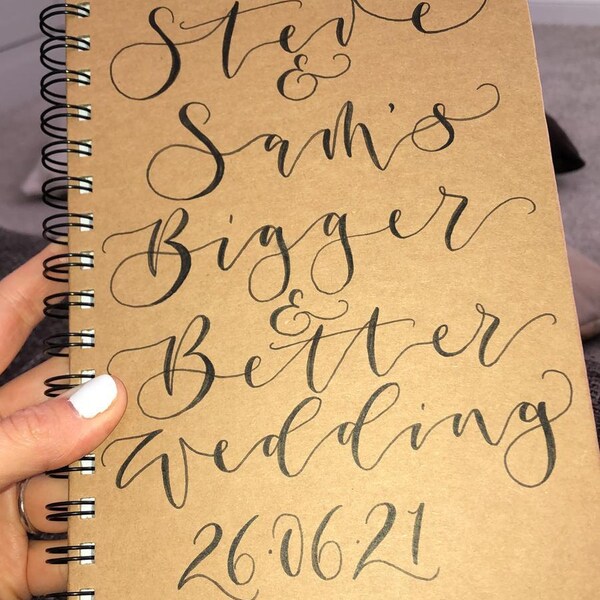 Steve
&
Sam's
Bigger
&
Better
Wedding
26.06.21